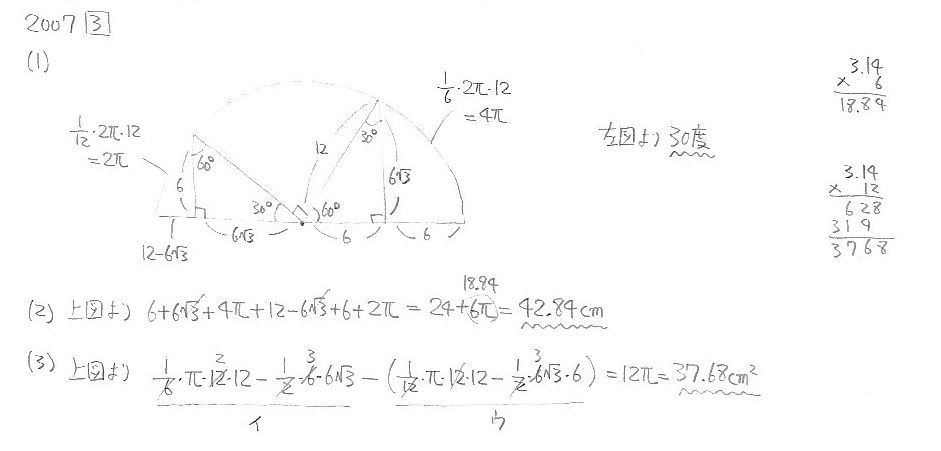 2007 3
(1)
1/12・2π・12
=2π
1/6・2π・12
=4π
60°
6
30°
12
30°
60°
6√3
6√3
6
6
12-6√3
左図より 30度
3.14
× 6
18.84
3.14
× 12
628
314
3768
18.84
(2) 上図より 6+6√3+4π+12-6√3+6+2π = 24+6π = 42.84cm
(3) 上図より 1/6・π・12・12 - 1/2・6・6√3 - (1/12・π・12・12 - 1/2・6√3・6) = 12π = 37.68cm²
2 3 3
イ ウ